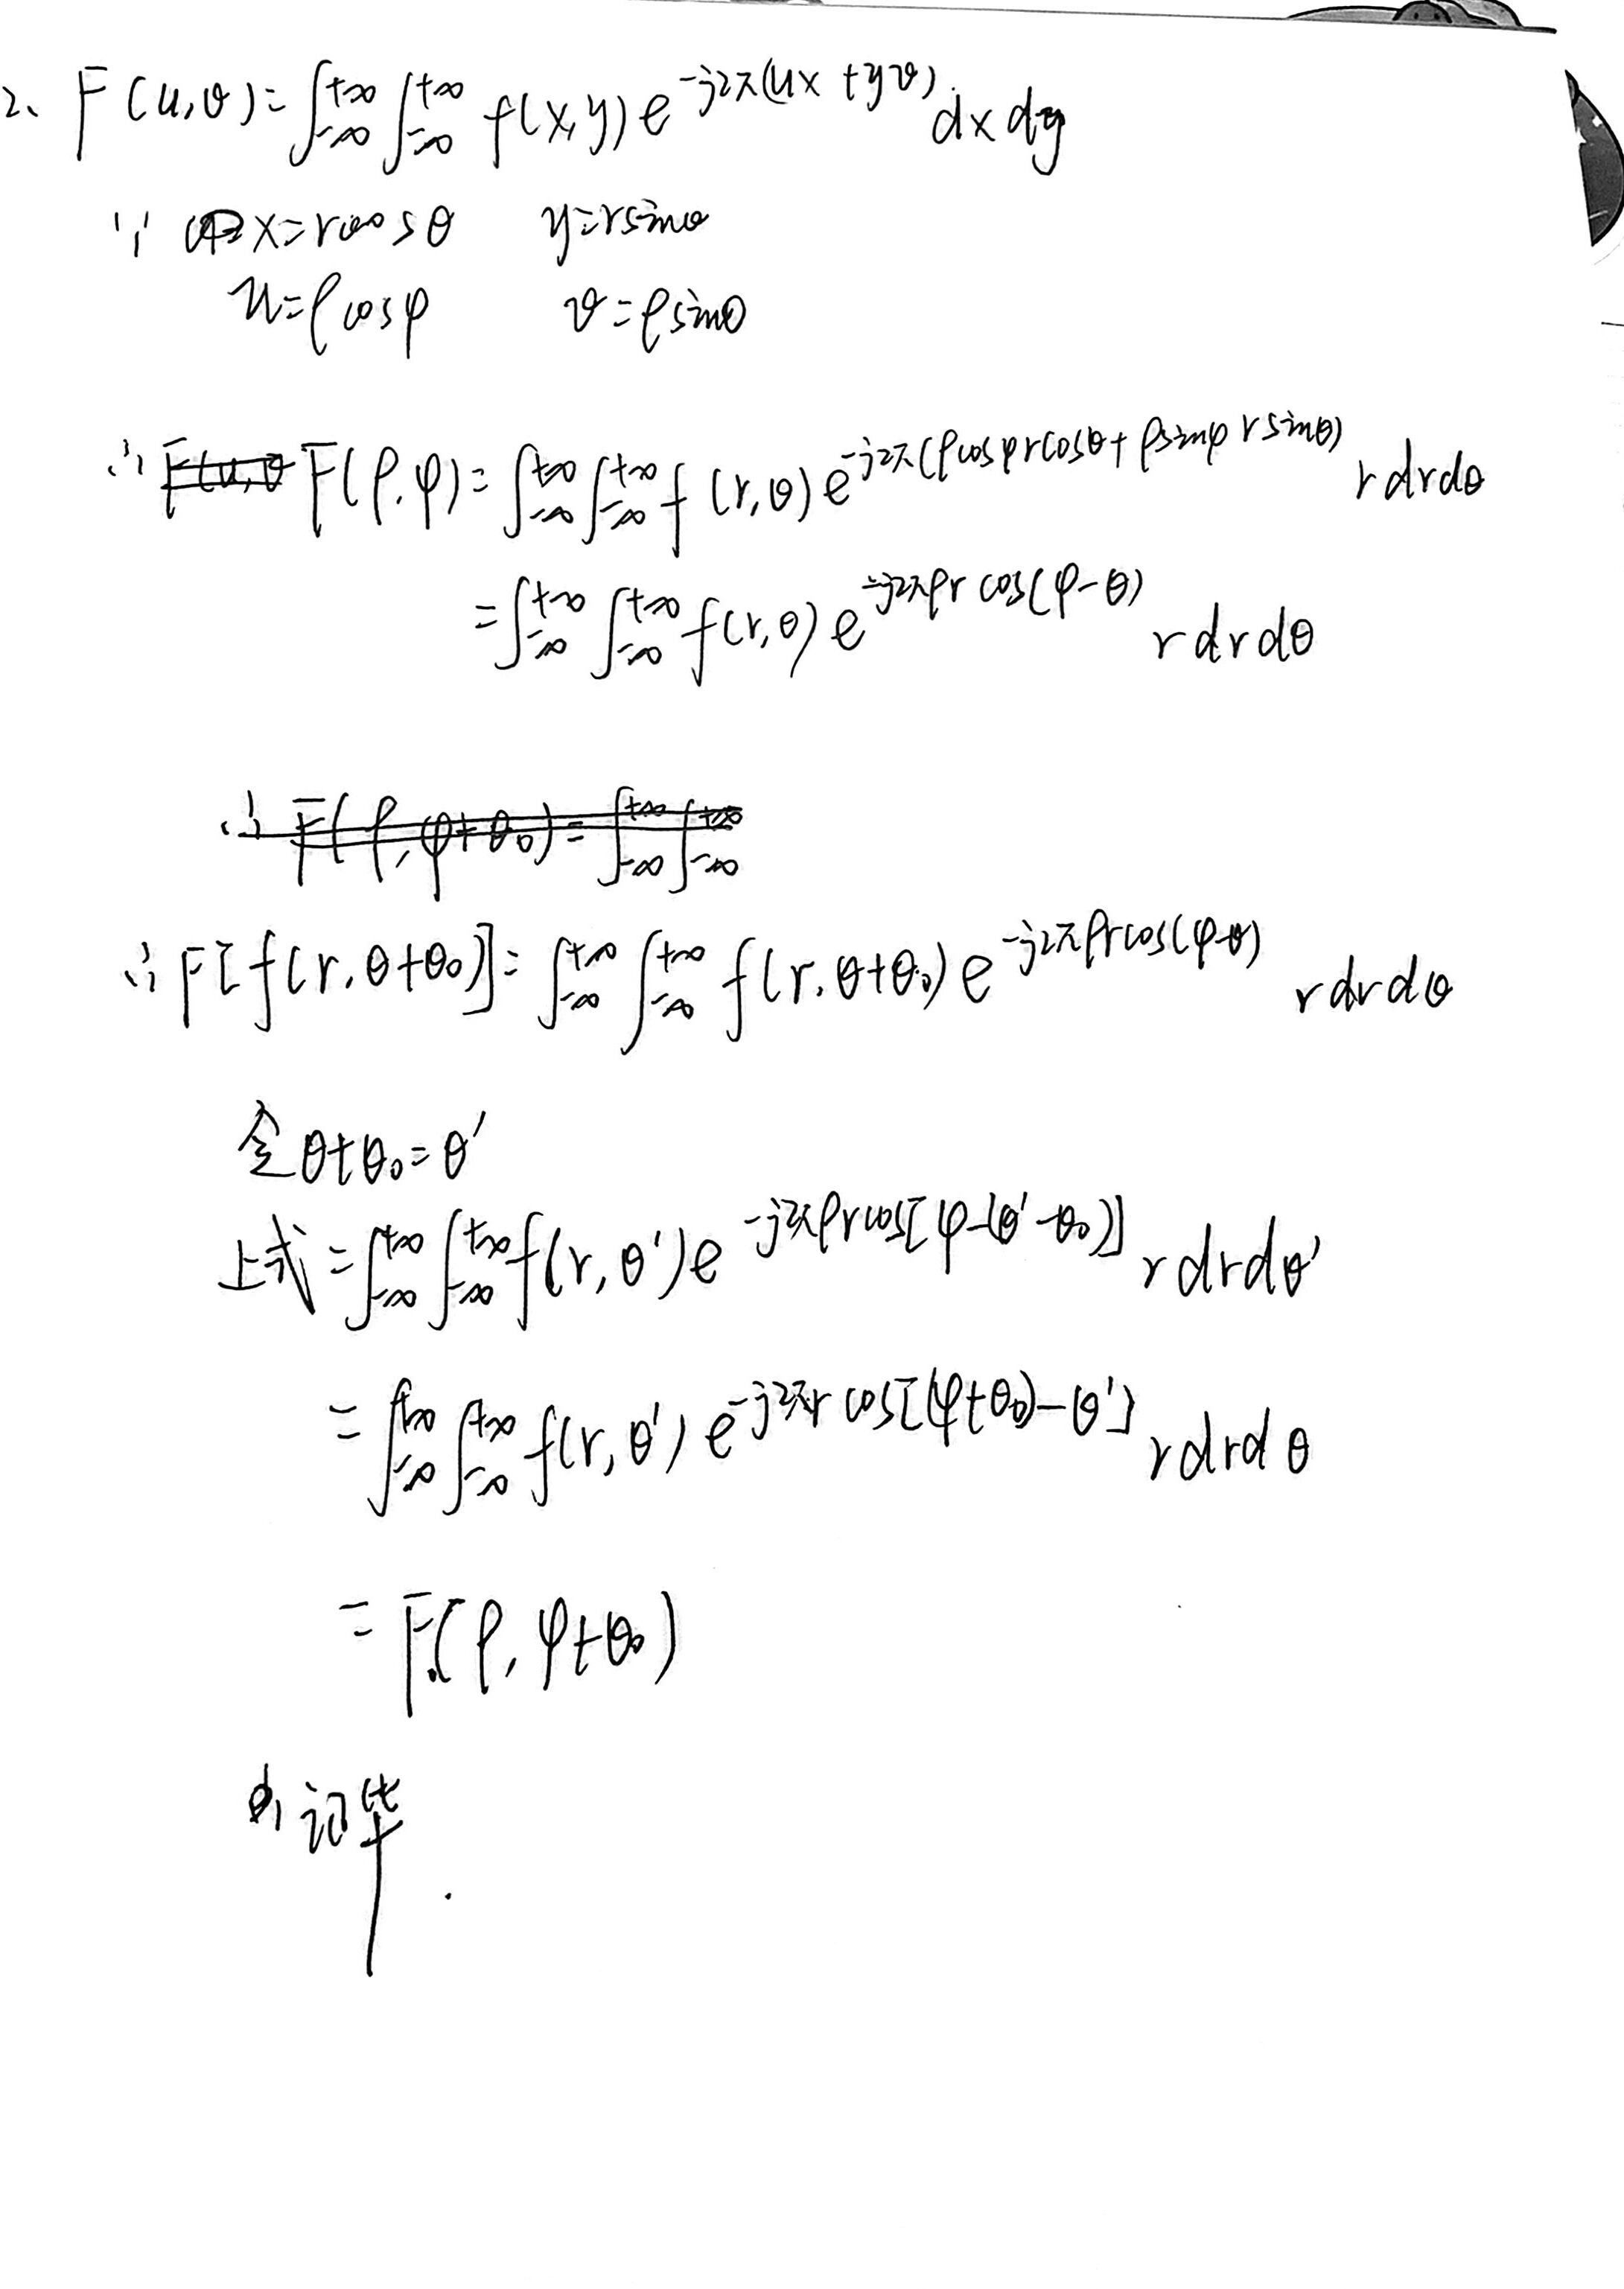 2、F(u,v)=∫_{-∞}^{+∞}∫_{-∞}^{+∞} f(x,y) e^{-j2π(ux+yv)} dxdy
∵ x=rcosθ y=rsinθ
u=ρcosφ v=ρsinθ
∴ F(ρ,φ)=∫_{-∞}^{+∞}∫_{-∞}^{+∞} f(r,θ) e^{-j2π(ρcosφrcosθ+ρsinφrsinθ)} rdrdθ
=∫_{-∞}^{+∞}∫_{-∞}^{+∞} f(r,θ) e^{-j2πρr cos(φ-θ)} rdrdθ
∴ F(ρ,φ+θ₀)=∫_{-∞}^{+∞}∫_{-∞}^{+∞}
∴ F[f(r,θ+θ₀)]=∫_{-∞}^{+∞}∫_{-∞}^{+∞} f(r,θ+θ₀) e^{-j2πρrcos(φ-θ)} rdrdθ
令θ+θ₀=θ'
上式=∫_{-∞}^{+∞}∫_{-∞}^{+∞} f(r,θ') e^{-j2πρrcos[φ-(θ'-θ₀)]} rdrdθ'
=∫_{-∞}^{+∞}∫_{-∞}^{+∞} f(r,θ') e^{-j2πr cos[(φ+θ₀)-θ']} rdrdθ
=F(ρ,φ+θ₀)
证毕.